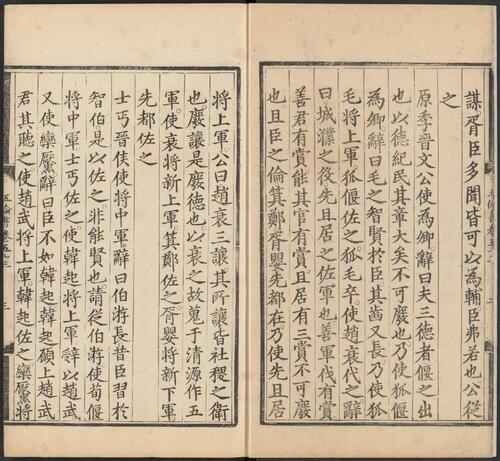 謀胥臣多聞皆可以為輔臣弗若也公從
之
原季晉文公使為卿辭曰夫三德者偃之出
也以德紀民其章大矣不可廢也乃使狐偃
為卿辭曰毛之智賢於臣其齒又長乃使狐
毛將上軍狐偃佐之狐毛卒使趙衰代之辭
曰城濮之役先且居之佐軍也善軍伐有賞
善君有賞能其官有賞且居有三賞不可廢
也且臣之倫箕鄭胥嬰先都在乃使先且居
將上軍公曰趙衰三讓其所讓皆社稷之衛
也廢讓是廢德也以衰之故蒐于清源作五
軍使衰將新上軍箕鄭佐之胥嬰將新下軍
先都佐之
士丐晉侯使將中軍辭曰伯游長昔臣習於
智伯是以佐之非能賢也請從伯游使荀偃
將中軍士丐佐之使韓起將上軍辭以趙武
又使欒黡辭曰臣不如韓起韓起願上趙武
君其聽之使趙武將上軍韓起佐之欒黡將
五倫書卷五十三
三